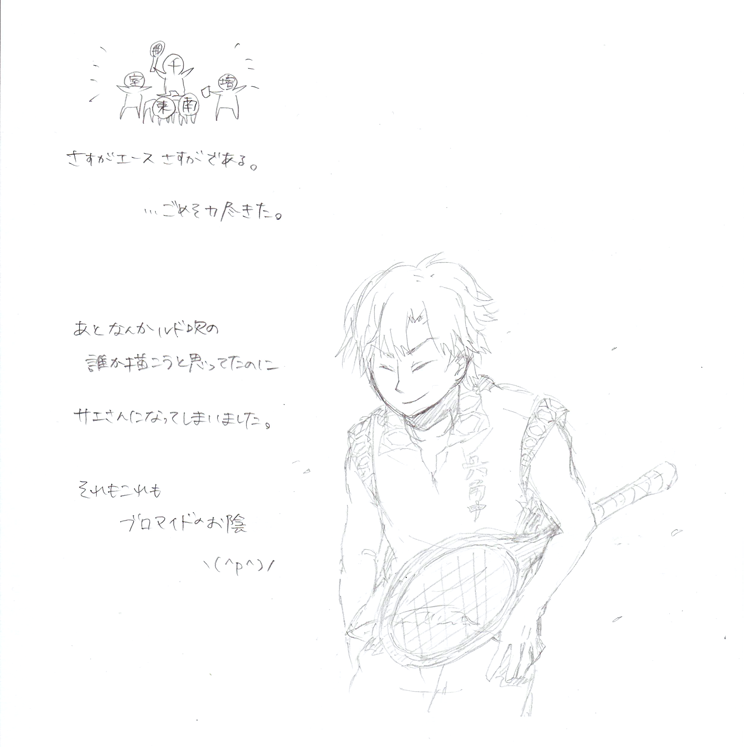 千
室
壇
東 南
さすがエース さすがである。
…ごめそ力尽きた。
あと なんかルド吹の
誰か描こうと思ってたのに
サエさんになってしまいました。
それもこれも
ブロマイドのお陰
\(^p^)/